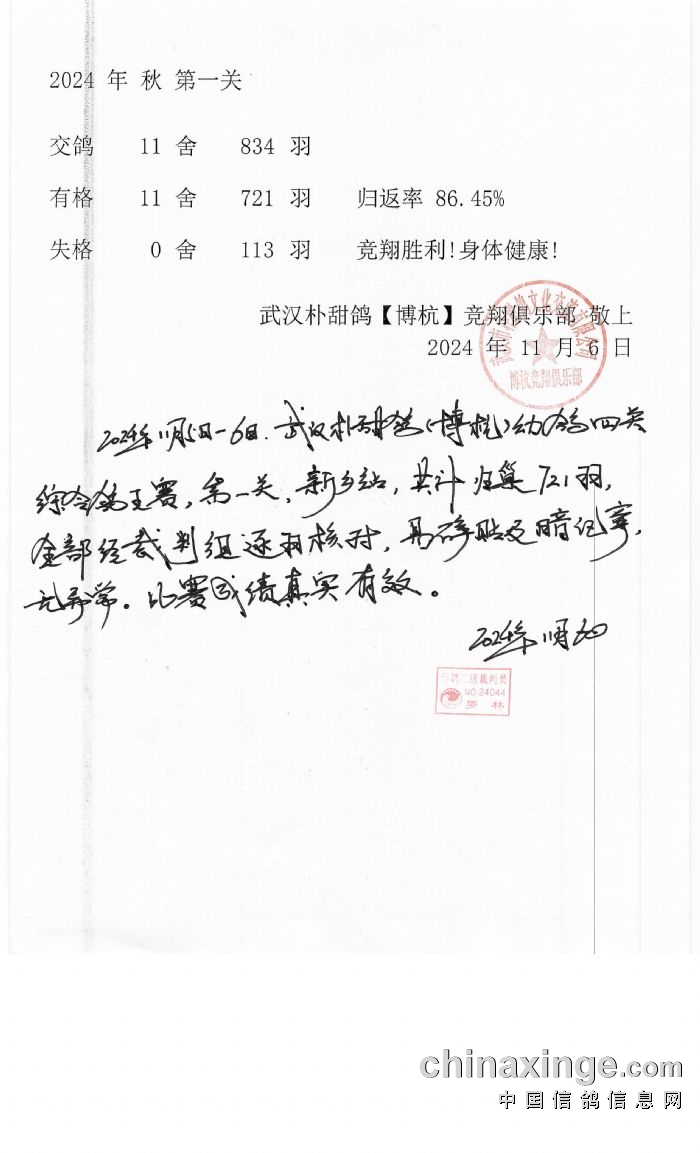 2024 年 秋 第一关
交鸽 11 舍 834 羽
有格 11 舍 721 羽 归返率 86.45%
失格 0 舍 113 羽 竞翔胜利!身体健康!
武汉朴甜鸽【博杭】竞翔俱乐部 敬上
2024 年 11 月 6 日
博杭竞翔俱乐部
2024年11月5日-6日.武汉朴甜鸽(博杭)幼鸽四关
综合鸽王赛,第一关,新乡站,共计归巢721羽,
全部经裁判组逐羽核对,
异常。比赛成绩真实有效。
2024年11月6日
信鸽二级裁判员
NO:24044
罗 林
chinaxinge.com
中国信鸽信息网